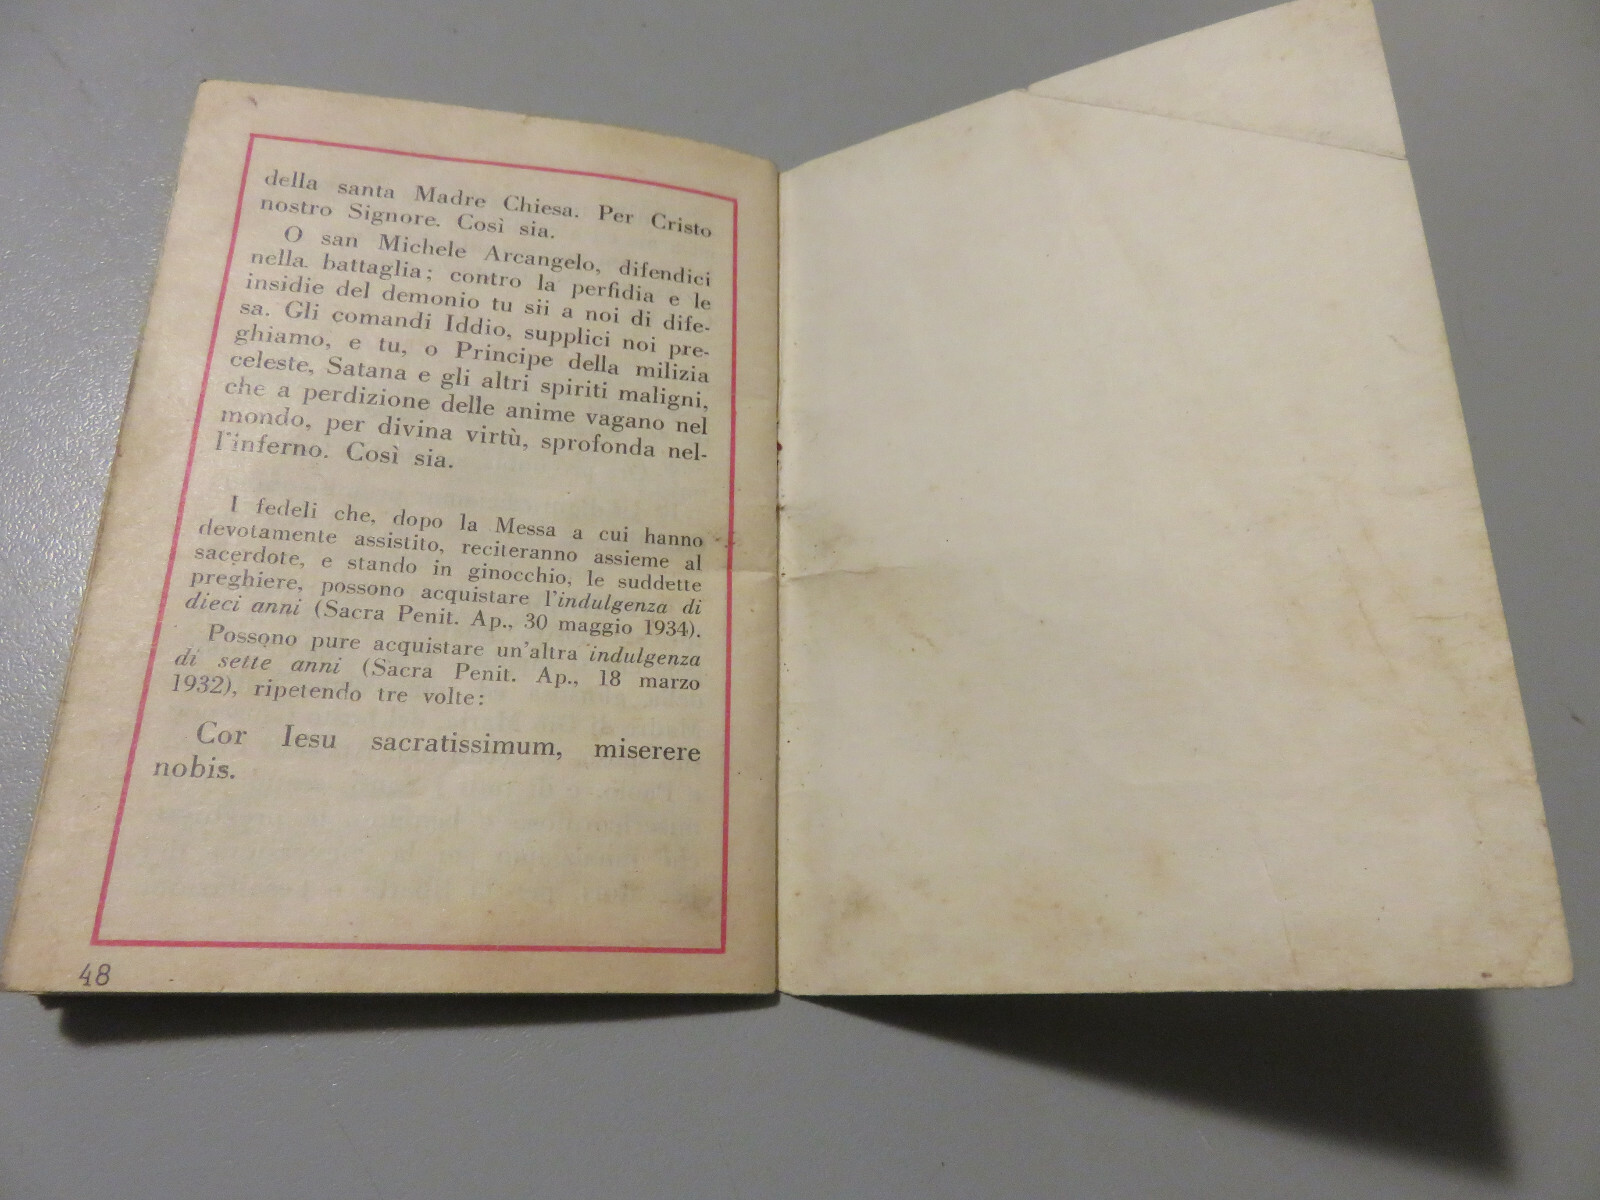 della santa Madre Chiesa. Per Cristo
nostro Signore. Così sia.
O san Michele Arcangelo, difendici
nella battaglia; contro la perfidia e le
insidie del demonio tu sii a noi di dife-
sa. Gli comandi Iddio, supplici noi pre-
ghiamo, e tu, o Principe della milizia
celeste, Satana e gli altri spiriti maligni,
che a perdizione delle anime vagano nel
mondo, per divina virtù, sprofonda nel-
l'inferno. Così sia.
I fedeli che, dopo la Messa a cui hanno
devotamente assistito, reciteranno assieme al
sacerdote, e stando in ginocchio, le suddette
preghiere, possono acquistare l'indulgenza di
dieci anni (Sacra Penit. Ap., 30 maggio 1934).
Possono pure acquistare un'altra indulgenza
di sette anni (Sacra Penit. Ap., 18 marzo
1932), ripetendo tre volte:
Cor Iesu sacratissimum, miserere
nobis.
48